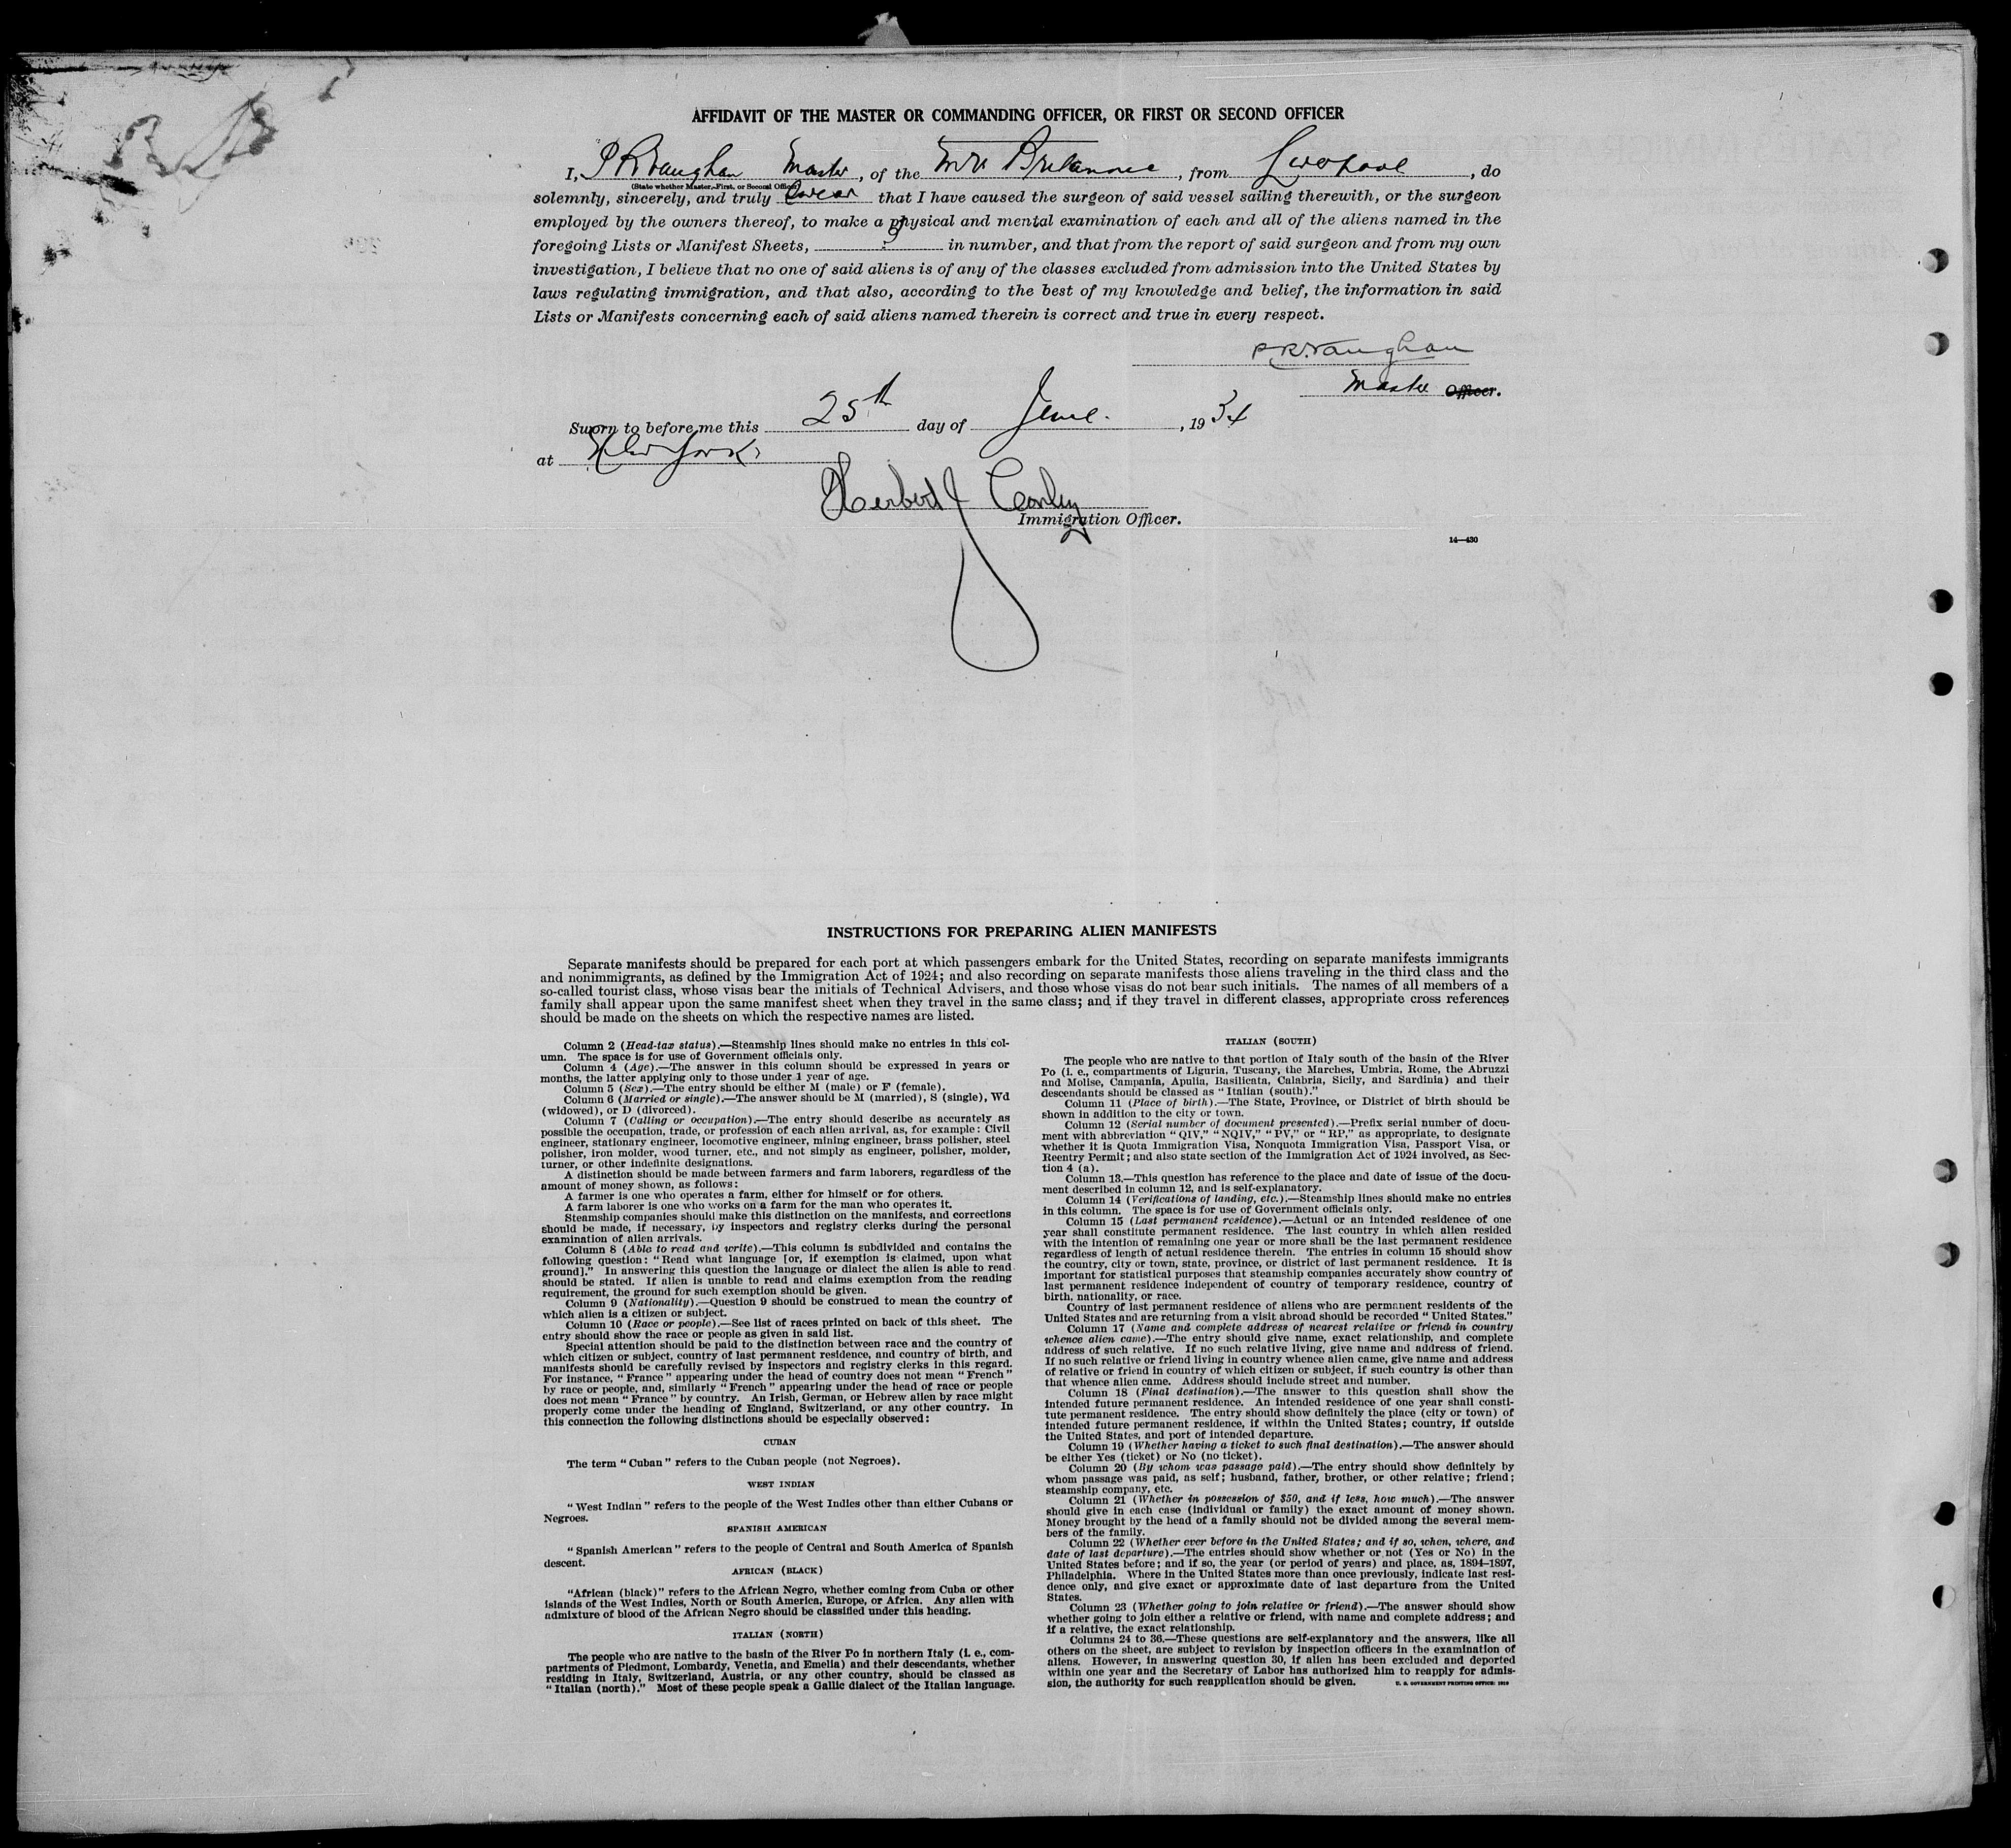 AFFIDAVIT OF THE MASTER OR COMMANDING OFFICER, OR FIRST OR SECOND OFFICER
I, P R Vaughan Master, of the MV Britannic, from Liverpool, do
(State whether Master, First, or Second Officer)
solemnly, sincerely, and truly swear that I have caused the surgeon of said vessel sailing therewith, or the surgeon
employed by the owners thereof, to make a physical and mental examination of each and all of the aliens named in the
foregoing Lists or Manifest Sheets, 9 in number, and that from the report of said surgeon and from my own
investigation, I believe that no one of said aliens is of any of the classes excluded from admission into the United States by
laws regulating immigration, and that also, according to the best of my knowledge and belief, the information in said
Lists or Manifests concerning each of said aliens named therein is correct and true in every respect.
P R Vaughan
Master Officer.
Sworn to before me this 25th day of June, 1934
at New York
Herbert J Conley
Immigration Officer.
14—430
INSTRUCTIONS FOR PREPARING ALIEN MANIFESTS
Separate manifests should be prepared for each port at which passengers embark for the United States, recording on separate manifests immigrants
and nonimmigrants, as defined by the Immigration Act of 1924; and also recording on separate manifests those aliens traveling in the third class and the
so-called tourist class, whose visas bear the initials of Technical Advisers, and those whose visas do not bear such initials. The names of all members of a
family shall appear upon the same manifest sheet when they travel in the same class; and if they travel in different classes, appropriate cross references
should be made on the sheets on which the respective names are listed.
Column 2 (Head-tax status).—Steamship lines should make no entries in this col-
umn. The space is for use of Government officials only.
Column 4 (Age).—The answer in this column should be expressed in years or
months, the latter applying only to those under 1 year of age.
Column 5 (Sex).—The entry should be either M (male) or F (female).
Column 6 (Married or single).—The answer should be M (married), S (single), Wd
(widowed), or D (divorced).
Column 7 (Calling or occupation).—The entry should describe as accurately as
possible the occupation, trade, or profession of each alien arrival, as, for example: Civil
engineer, stationary engineer, locomotive engineer, mining engineer, brass polisher, steel
polisher, iron molder, wood turner, etc., and not simply as engineer, polisher, molder,
turner, or other indefinite designations.
A distinction should be made between farmers and farm laborers, regardless of the
amount of money shown, as follows:
A farmer is one who operates a farm, either for himself or for others.
A farm laborer is one who works on a farm for the man who operates it.
Steamship companies should make this distinction on the manifests, and corrections
should be made, if necessary, by inspectors and registry clerks during the personal
examination of alien arrivals.
Column 8 (Able to read and write).—This column is subdivided and contains the
following question: "Read what language [or, if exemption is claimed, upon what
ground]." In answering this question the language or dialect the alien is able to read
should be stated. If alien is unable to read and claims exemption from the reading
requirement, the ground for such exemption should be given.
Column 9 (Nationality).—Question 9 should be construed to mean the country of
which alien is a citizen or subject.
Column 10 (Race or people).—See list of races printed on back of this sheet. The
entry should show the race or people as given in said list.
Special attention should be paid to the distinction between race and the country of
which citizen or subject, country of last permanent residence, and country of birth, and
manifests should be carefully revised by inspectors and registry clerks in this regard.
For instance, "France" appearing under the head of country does not mean "French"
by race or people, and, similarly "French" appearing under the head of race or people
does not mean "France" by country. An Irish, German, or Hebrew alien by race might
properly come under the heading of England, Switzerland, or any other country. In
this connection the following distinctions should be especially observed:
CUBAN
The term "Cuban" refers to the Cuban people (not Negroes).
WEST INDIAN
"West Indian" refers to the people of the West Indies other than either Cubans or
Negroes.
SPANISH AMERICAN
"Spanish American" refers to the people of Central and South America of Spanish
descent.
AFRICAN (BLACK)
"African (black)" refers to the African Negro, whether coming from Cuba or other
islands of the West Indies, North or South America, Europe, or Africa. Any alien with
admixture of blood of the African Negro should be classified under this heading.
ITALIAN (NORTH)
The people who are native to the basin of the River Po in northern Italy (i. e., com-
partments of Piedmont, Lombardy, Venetia, and Emelia) and their descendants, whether
residing in Italy, Switzerland, Austria, or any other country, should be classed as
"Italian (north)." Most of these people speak a Gallic dialect of the Italian language.
ITALIAN (SOUTH)
The people who are native to that portion of Italy south of the basin of the River
Po (i. e., compartments of Liguria, Tuscany, the Marches, Umbria, Rome, the Abruzzi
and Molise, Campania, Apulia, Basilicata, Calabria, Sicily, and Sardinia) and their
descendants should be classed as "Italian (south)."
Column 11 (Place of birth).—The State, Province, or District of birth should be
shown in addition to the city or town.
Column 12 (Serial number of document presented).—Prefix serial number of docu-
ment with abbreviation "QIV," "NQIV," "PV," or "RP," as appropriate, to designate
whether it is Quota Immigration Visa, Nonquota Immigration Visa, Passport Visa, or
Reentry Permit; and also state section of the Immigration Act of 1924 involved, as Sec-
tion 4 (a).
Column 13.—This question has reference to the place and date of issue of the docu-
ment described in column 12, and is self-explanatory.
Column 14 (Verifications of landing, etc.).—Steamship lines should make no entries
in this column. The space is for use of Government officials only.
Column 15 (Last permanent residence).—Actual or an intended residence of one
year shall constitute permanent residence. The last country in which alien resided
with the intention of remaining one year or more shall be the last permanent residence
regardless of length of actual residence therein. The entries in column 15 should show
the country, city or town, state, province, or district of last permanent residence. It is
important for statistical purposes that steamship companies accurately show country of
last permanent residence independent of country of temporary residence, country of
birth, nationality, or race.
Country of last permanent residence of aliens who are permanent residents of the
United States and are returning from a visit abroad should be recorded "United States."
Column 17 (Name and complete address of nearest relative or friend in country
whence alien came).—The entry should give name, exact relationship, and complete
address of such relative. If no such relative living, give name and address of friend.
If no such relative or friend living in country whence alien came, give name and address
of relative or friend in country of which citizen or subject, if such country is other than
that whence alien came. Address should include street and number.
Column 18 (Final destination).—The answer to this question shall show the
intended future permanent residence. An intended residence of one year shall consti-
tute permanent residence. The entry should show definitely the place (city or town) of
intended future permanent residence, if within the United States; country, if outside
the United States, and port of intended departure.
Column 19 (Whether having a ticket to such final destination).—The answer should
be either Yes (ticket) or No (no ticket).
Column 20 (By whom was passage paid).—The entry should show definitely by
whom passage was paid, as self; husband, father, brother, or other relative; friend;
steamship company, etc.
Column 21 (Whether in possession of $50, and if less, how much).—The answer
should give in each case (individual or family) the exact amount of money shown.
Money brought by the head of a family should not be divided among the several mem-
bers of the family.
Column 22 (Whether ever before in the United States; and if so, when, where, and
date of last departure).—The entries should show whether or not (Yes or No) in the
United States before; and if so, the year (or period of years) and place, as, 1894–1897,
Philadelphia. Where in the United States more than once previously, indicate last resi-
dence only, and give exact or approximate date of last departure from the United
States.
Column 23 (Whether going to join relative or friend).—The answer should show
whether going to join either a relative or friend, with name and complete address; and
if a relative, the exact relationship.
Columns 24 to 36.—These questions are self-explanatory and the answers, like all
others on the sheet, are subject to revision by inspection officers in the examination of
aliens. However, in answering question 30, if alien has been excluded and deported
within one year and the Secretary of Labor has authorized him to reapply for admis-
sion, the authority for such reapplication should be given.
U. S. GOVERNMENT PRINTING OFFICE: